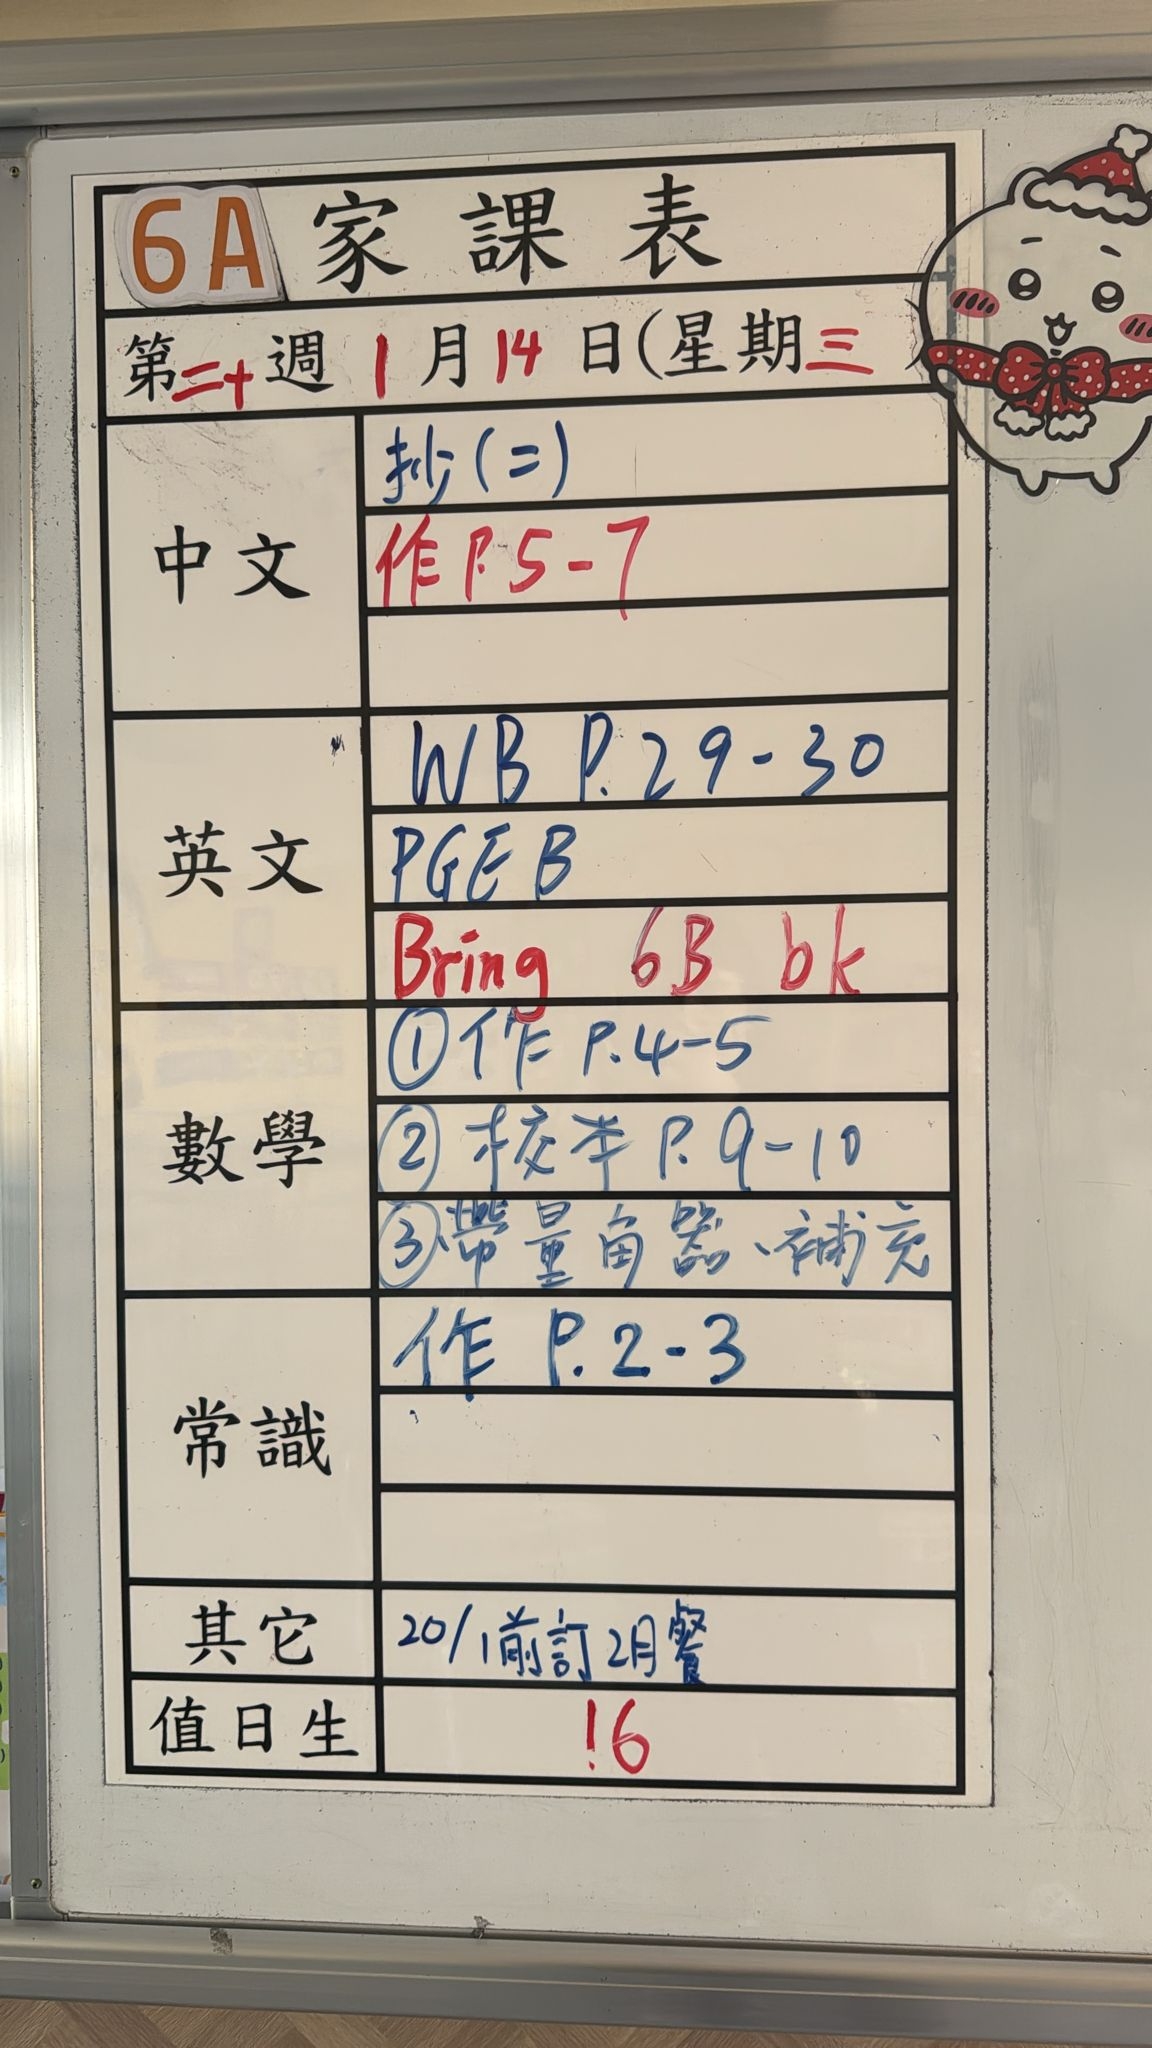 6A 家課表
第二十週 1月14日(星期三
中文
抄(二)
作 P.5-7
英文
WB P.29-30
PGEB
Bring 6B bk
數學
①作 P.4-5
②校本 P.9-10
③帶量角器、補充
常識
作 P.2-3
其它
20/1前訂2月餐
值日生
!6